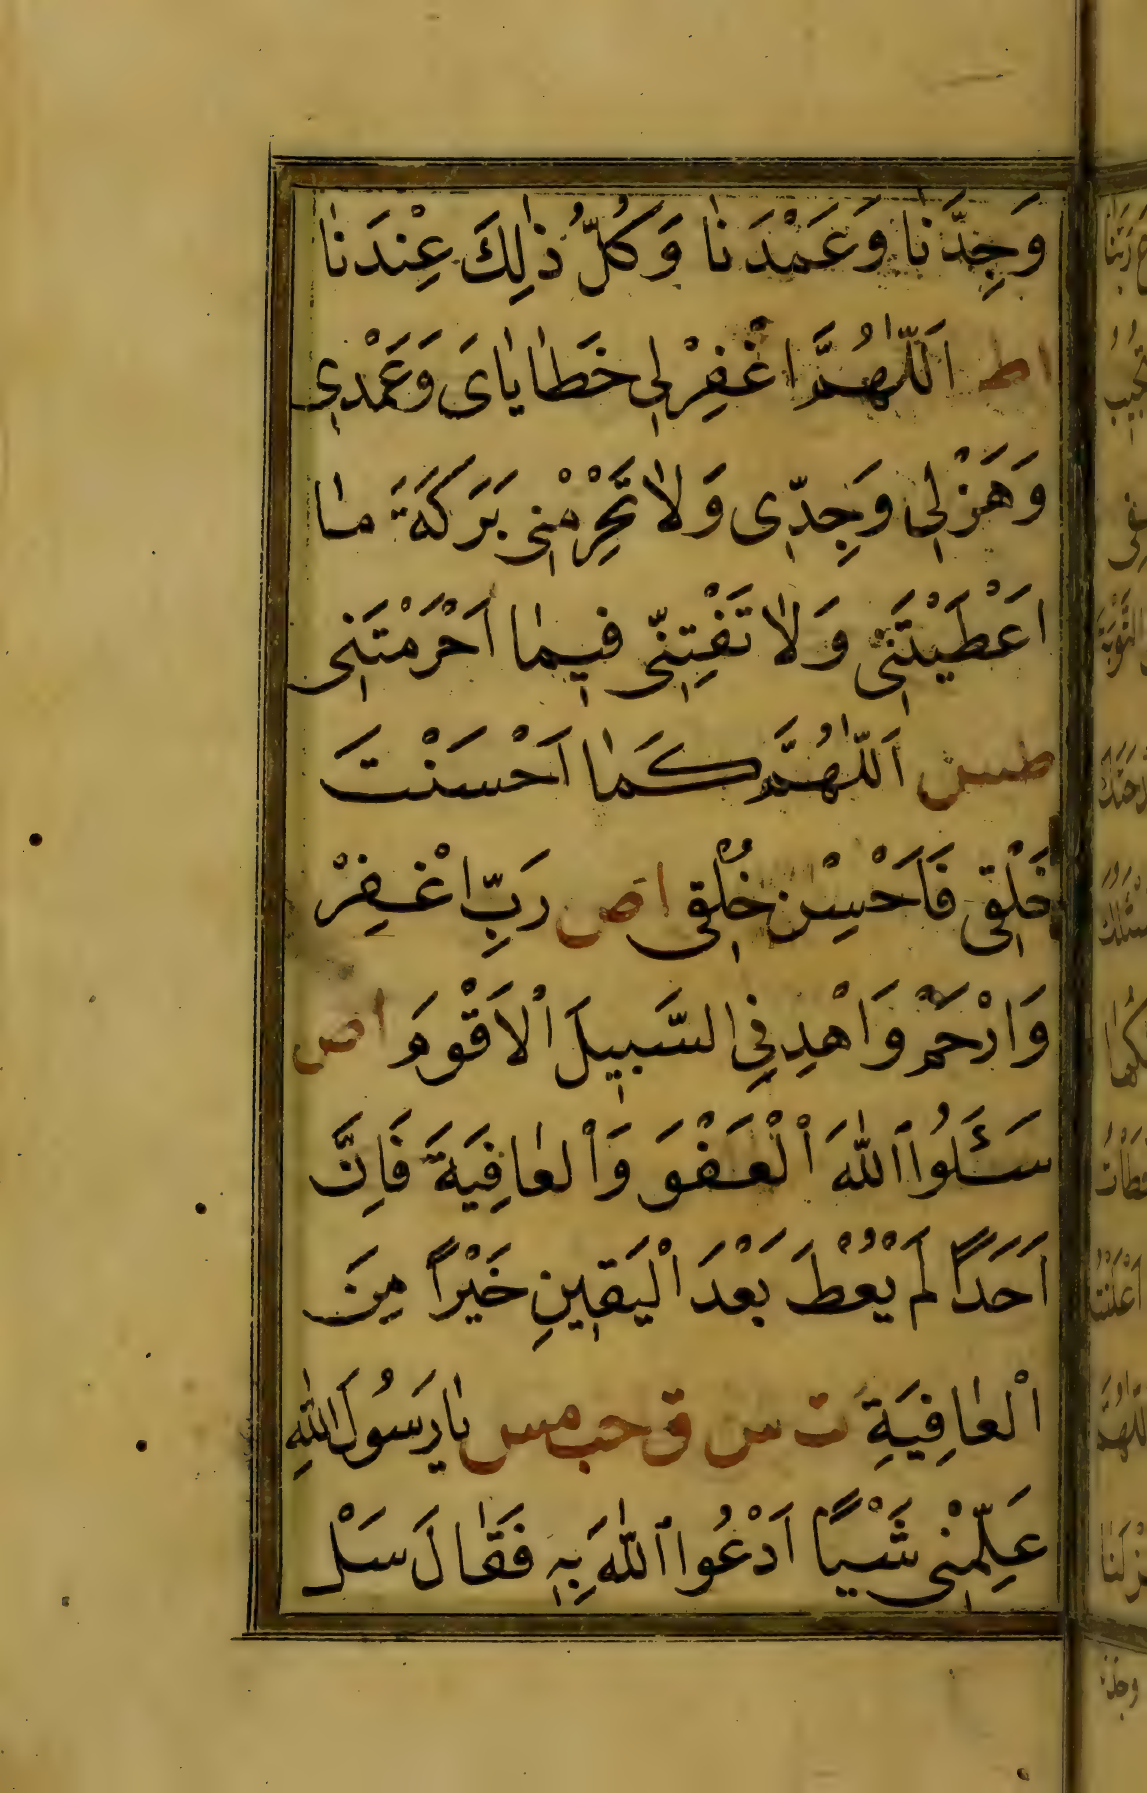 وَجِدَّنٰا وَعَمْدَنٰا وَكُلُّ ذٰلِكَ عِنْدَنٰا
اط اَللّٰهُمَّ اغْفِرْ لٖى خَطٰايٰاىَ وَعَمْدٖى
وَهَزْلٖى وَجِدّٖى وَلٰا تَحْرِمْنٖى بَرَكَةَ مٰا
اَعْطَيْتَنٖى وَلٰا تَفْتِنّٖى فيمٰا اَحْرَمْتَنٖى
طس اَللّٰهُمَّ كَمٰا اَحْسَنْتَ
خَلْقٖى فَاَحْسِنْ خُلْقٖى اص رَبِّ اغْفِرْ
وَارْحَمْ وَاهْدِنِى السَّبٖيلَ الْاَقْوَمَ اص
سَئَلُوا اللّٰهَ الْعَفْوَ وَالْعٰافِيَةَ فَاِنَّ
اَحَدًا لَمْ يُعْطَ بَعْدَ الْيَقٖينِ خَيْرًا مِنَ
الْعٰافِيَةِ ت س ق حب مس يٰا رَسُولَ اللّٰهِ
عَلِّمْنٖى شَيْـًٔا اَدْعُوا اللّٰهَ بِهٖ فَقٰالَ سَلْ